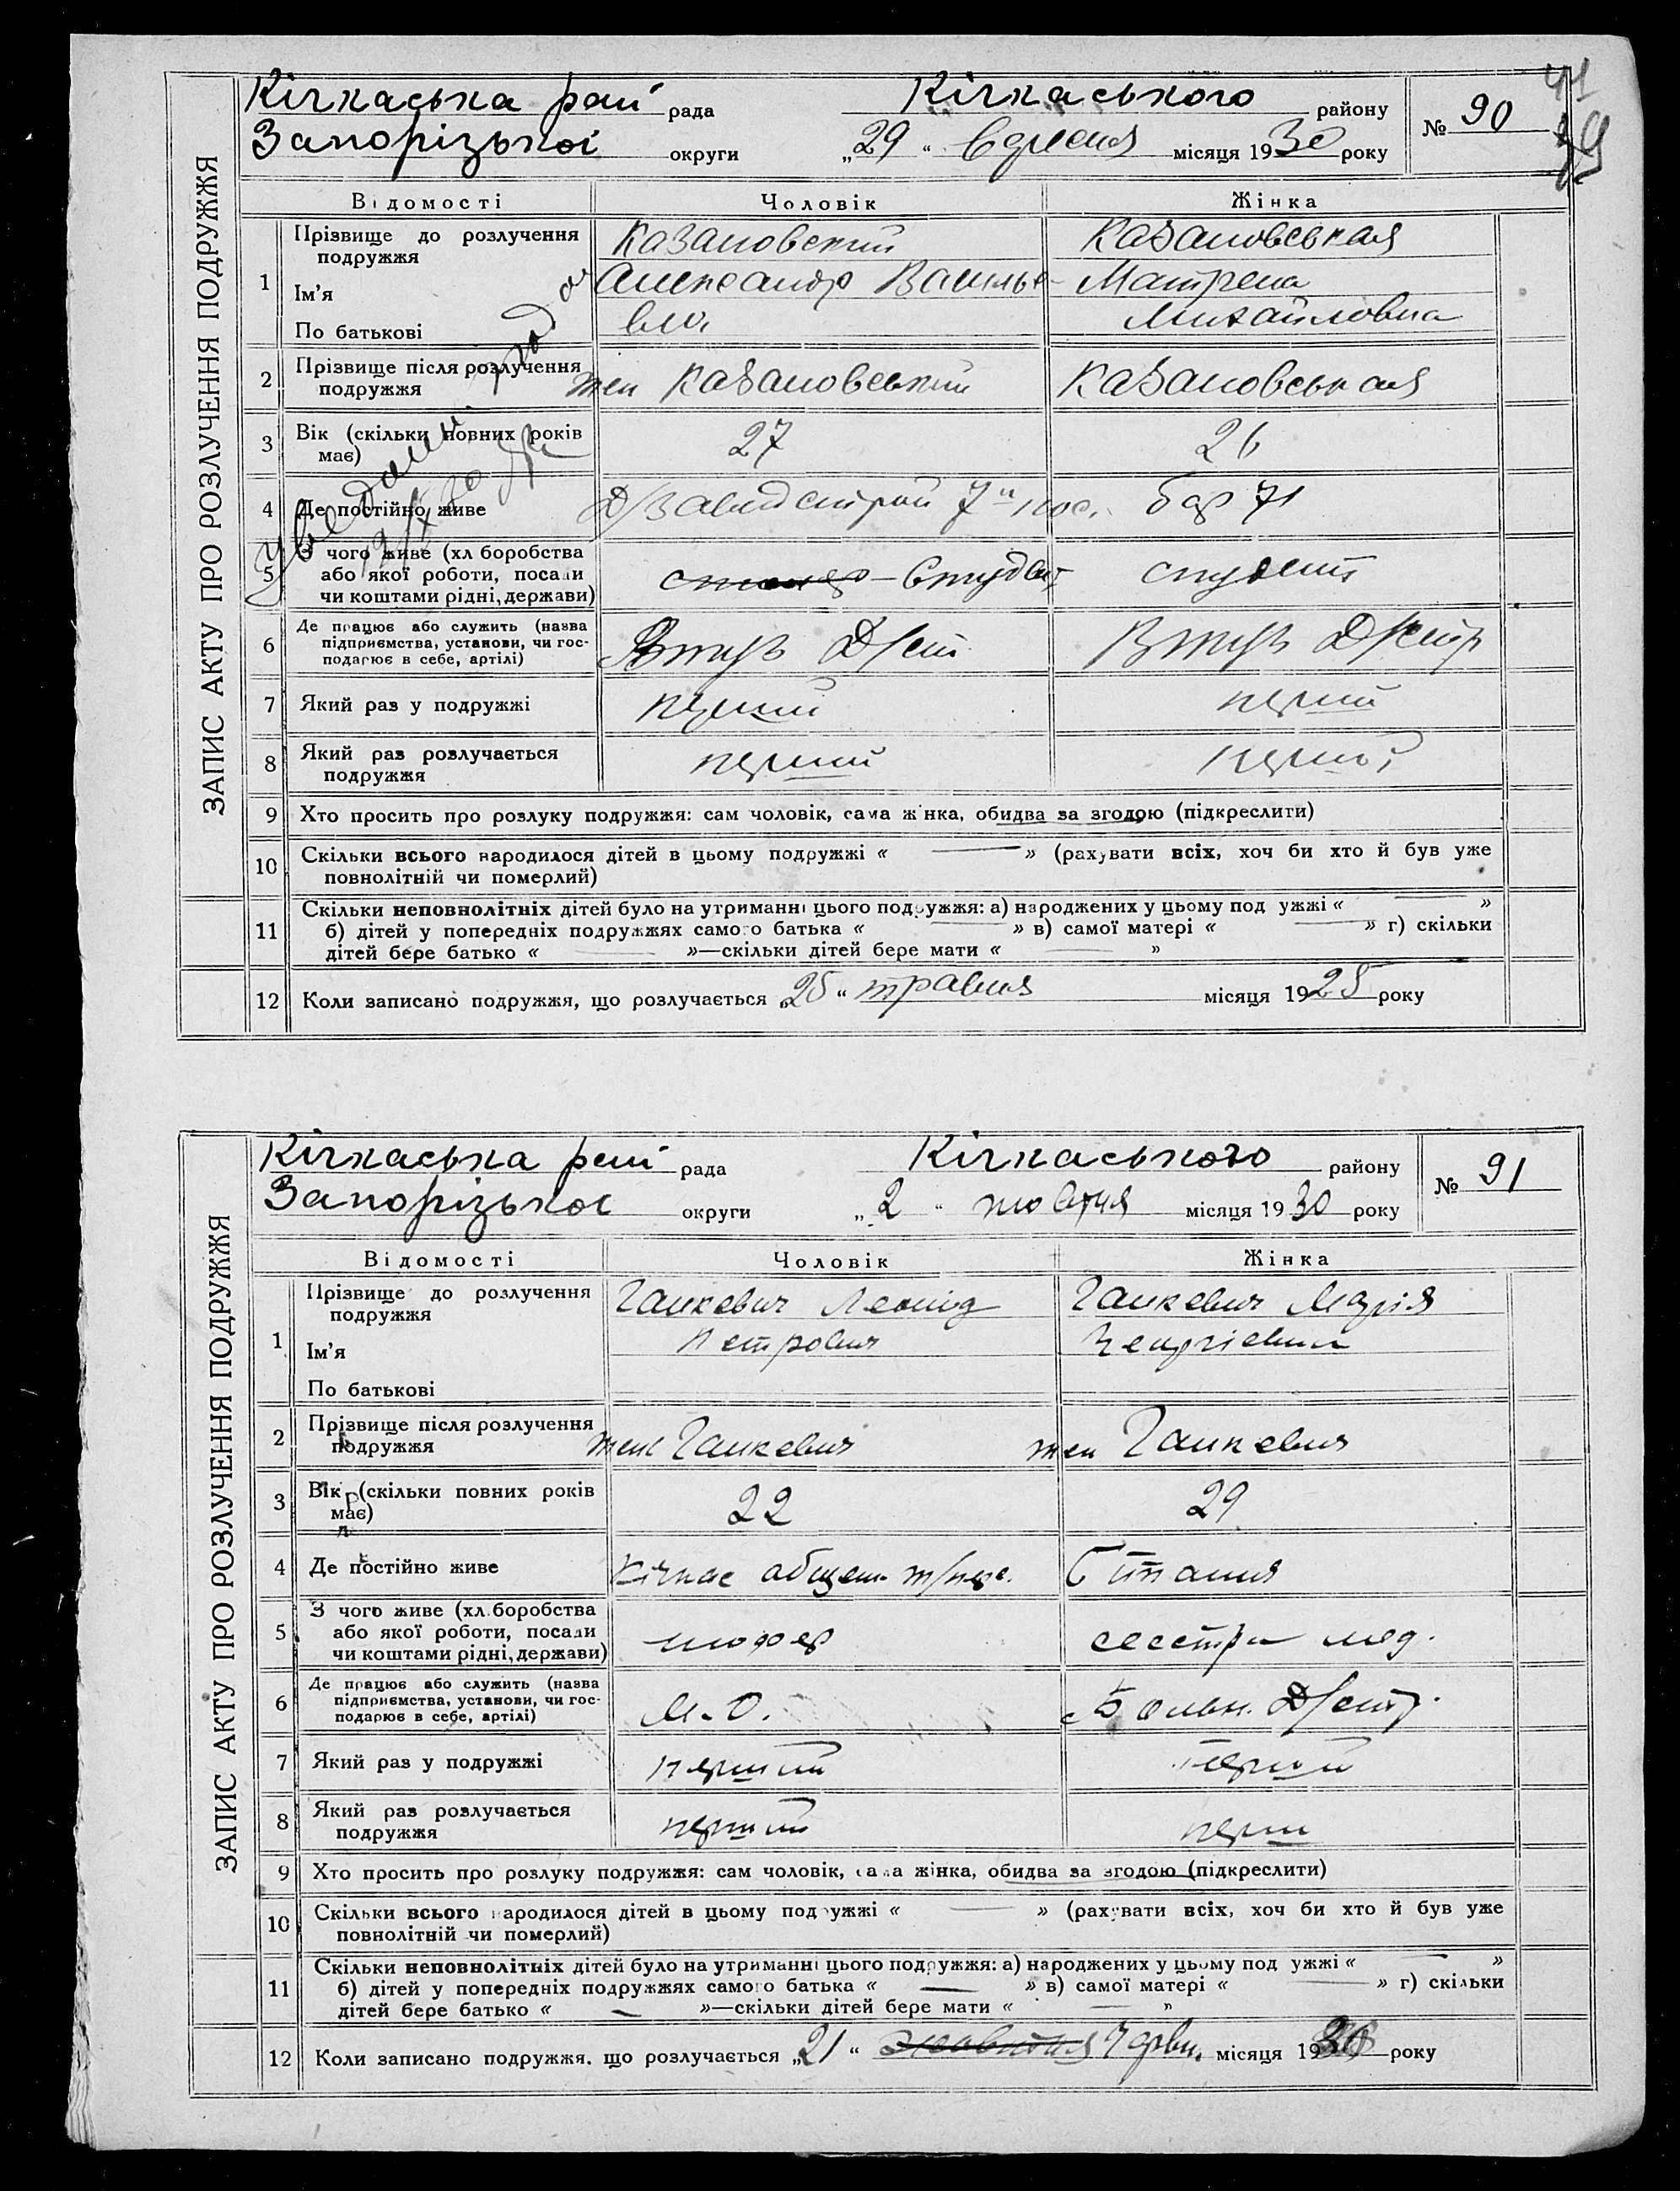 41
79
ЗАПИС АКТУ ПРО РОЗЛУЧЕННЯ ПОДРУЖЖЯ
Кічкаська рай рада Кічкаського району № 90
Запорізької округи „29“ вересня місяця 1930 року
Відомості Чоловік Жінка
1 Прізвище до розлучення подружжя Казановский Казановськая
Ім’я Александр Василье- Матрена
По батькові вич Михайловна
2 Прізвище після розлучення подружжя Казановський Казановськая
3 Вік (скільки повних років має) 27 26
4 Де постійно живе 7й пос. бар 71
5 З чого живе (хліборобства або якої роботи, посади чи коштами рідні, держави) студент студент
6 Де працює або служить (назва підприємства, установи, чи господарює в себе, артілі) Втуз Втуз
7 Який раз у подружжі перший перший
8 Який раз розлучається подружжя перший перший
9 Хто просить про розлуку подружжя: сам чоловік, сама жінка, обидва за згодою (підкреслити)
10 Скільки всього народилося дітей в цьому подружжі « — » (рахувати всіх, хоч би хто й був уже
повнолітній чи померлий)
11 Скільки неповнолітніх дітей було на утриманні цього подружжя: а) народжених у цьому подружжі « — »
б) дітей у попередніх подружжях самого батька « — » в) самої матері « — » г) скільки
дітей бере батько « — »—скільки дітей бере мати « — »
12 Коли записано подружжя, що розлучається „25“ травня місяця 1925 року
ЗАПИС АКТУ ПРО РОЗЛУЧЕННЯ ПОДРУЖЖЯ
Кічкаська рай рада Кічкаського району № 91
Запорізької округи „2“ жовтня місяця 1930 року
Відомості Чоловік Жінка
1 Прізвище до розлучення подружжя Ганкевич Леонід Ганкевич Марія
Ім’я Петрович Георгіевна
По батькові
2 Прізвище після розлучення подружжя Ганкевич Ганкевич
3 Вік (скільки повних років має) 22 29
4 Де постійно живе Кічкас общеж
5 З чого живе (хліборобства або якої роботи, посади чи коштами рідні, держави) шофер сесстра мед.
6 Де працює або служить (назва підприємства, установи, чи господарює в себе, артілі) М.О. Больн.
7 Який раз у подружжі перший перший
8 Який раз розлучається подружжя перший перш
9 Хто просить про розлуку подружжя: сам чоловік, сама жінка, обидва за згодою (підкреслити)
10 Скільки всього народилося дітей в цьому подружжі « — » (рахувати всіх, хоч би хто й був уже
повнолітній чи померлий)
11 Скільки неповнолітніх дітей було на утриманні цього подружжя: а) народжених у цьому подружжі « — »
б) дітей у попередніх подружжях самого батька « — » в) самої матері « — » г) скільки
дітей бере батько « — »—скільки дітей бере мати « — »
12 Коли записано подружжя, що розлучається „21“ жовтня Червн. місяця 1930 року